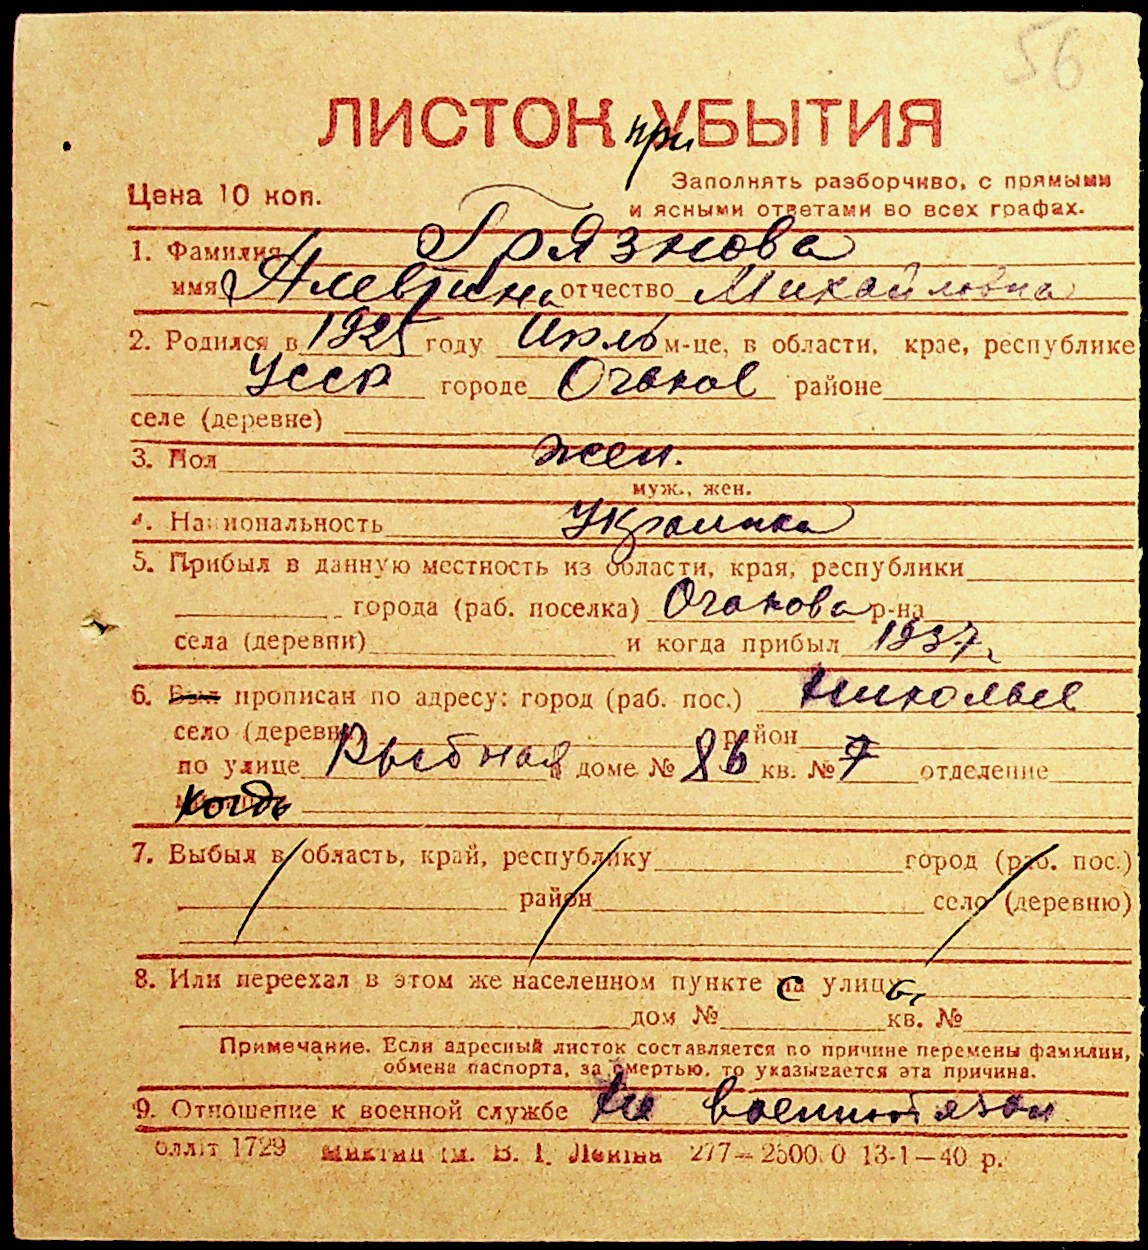 56
ЛИСТОК при УБЫТИЯ
Цена 10 коп.
Заполнять разборчиво, с прямыми
и ясными ответами во всех графах.
1. Фамилия Грязнова
имя Алевтина отчество Михайловна
2. Родился в 1925 году Июль м-це, в области, крае, республике
УССР городе Очаков районе
селе (деревне)
3. Пол жен.
муж., жен.
4. Национальность Украинка
5. Прибыл в данную местность из области, края, республики
города (раб. поселка) Очакова р-на
села (деревни) и когда прибыл 1937 г.
6. Был прописан по адресу: город (раб. пос.) Николаев
село (деревня) район
по улице Рыбная доме № 86 кв. № 7 отделение
когда
7. Выбыл в область, край, республику город (раб. пос.)
район село (деревню)
8. Или переехал в этом же населенном пункте с улицы
дом № кв. №
Примечание. Если адресный листок составляется по причине перемены фамилии,
обмена паспорта, за смертью, то указывается эта причина.
9. Отношение к военной службе Не военнообязан
блліт 1729 ім. В. І. Леніна 277—2500.0 13-1—40 р.